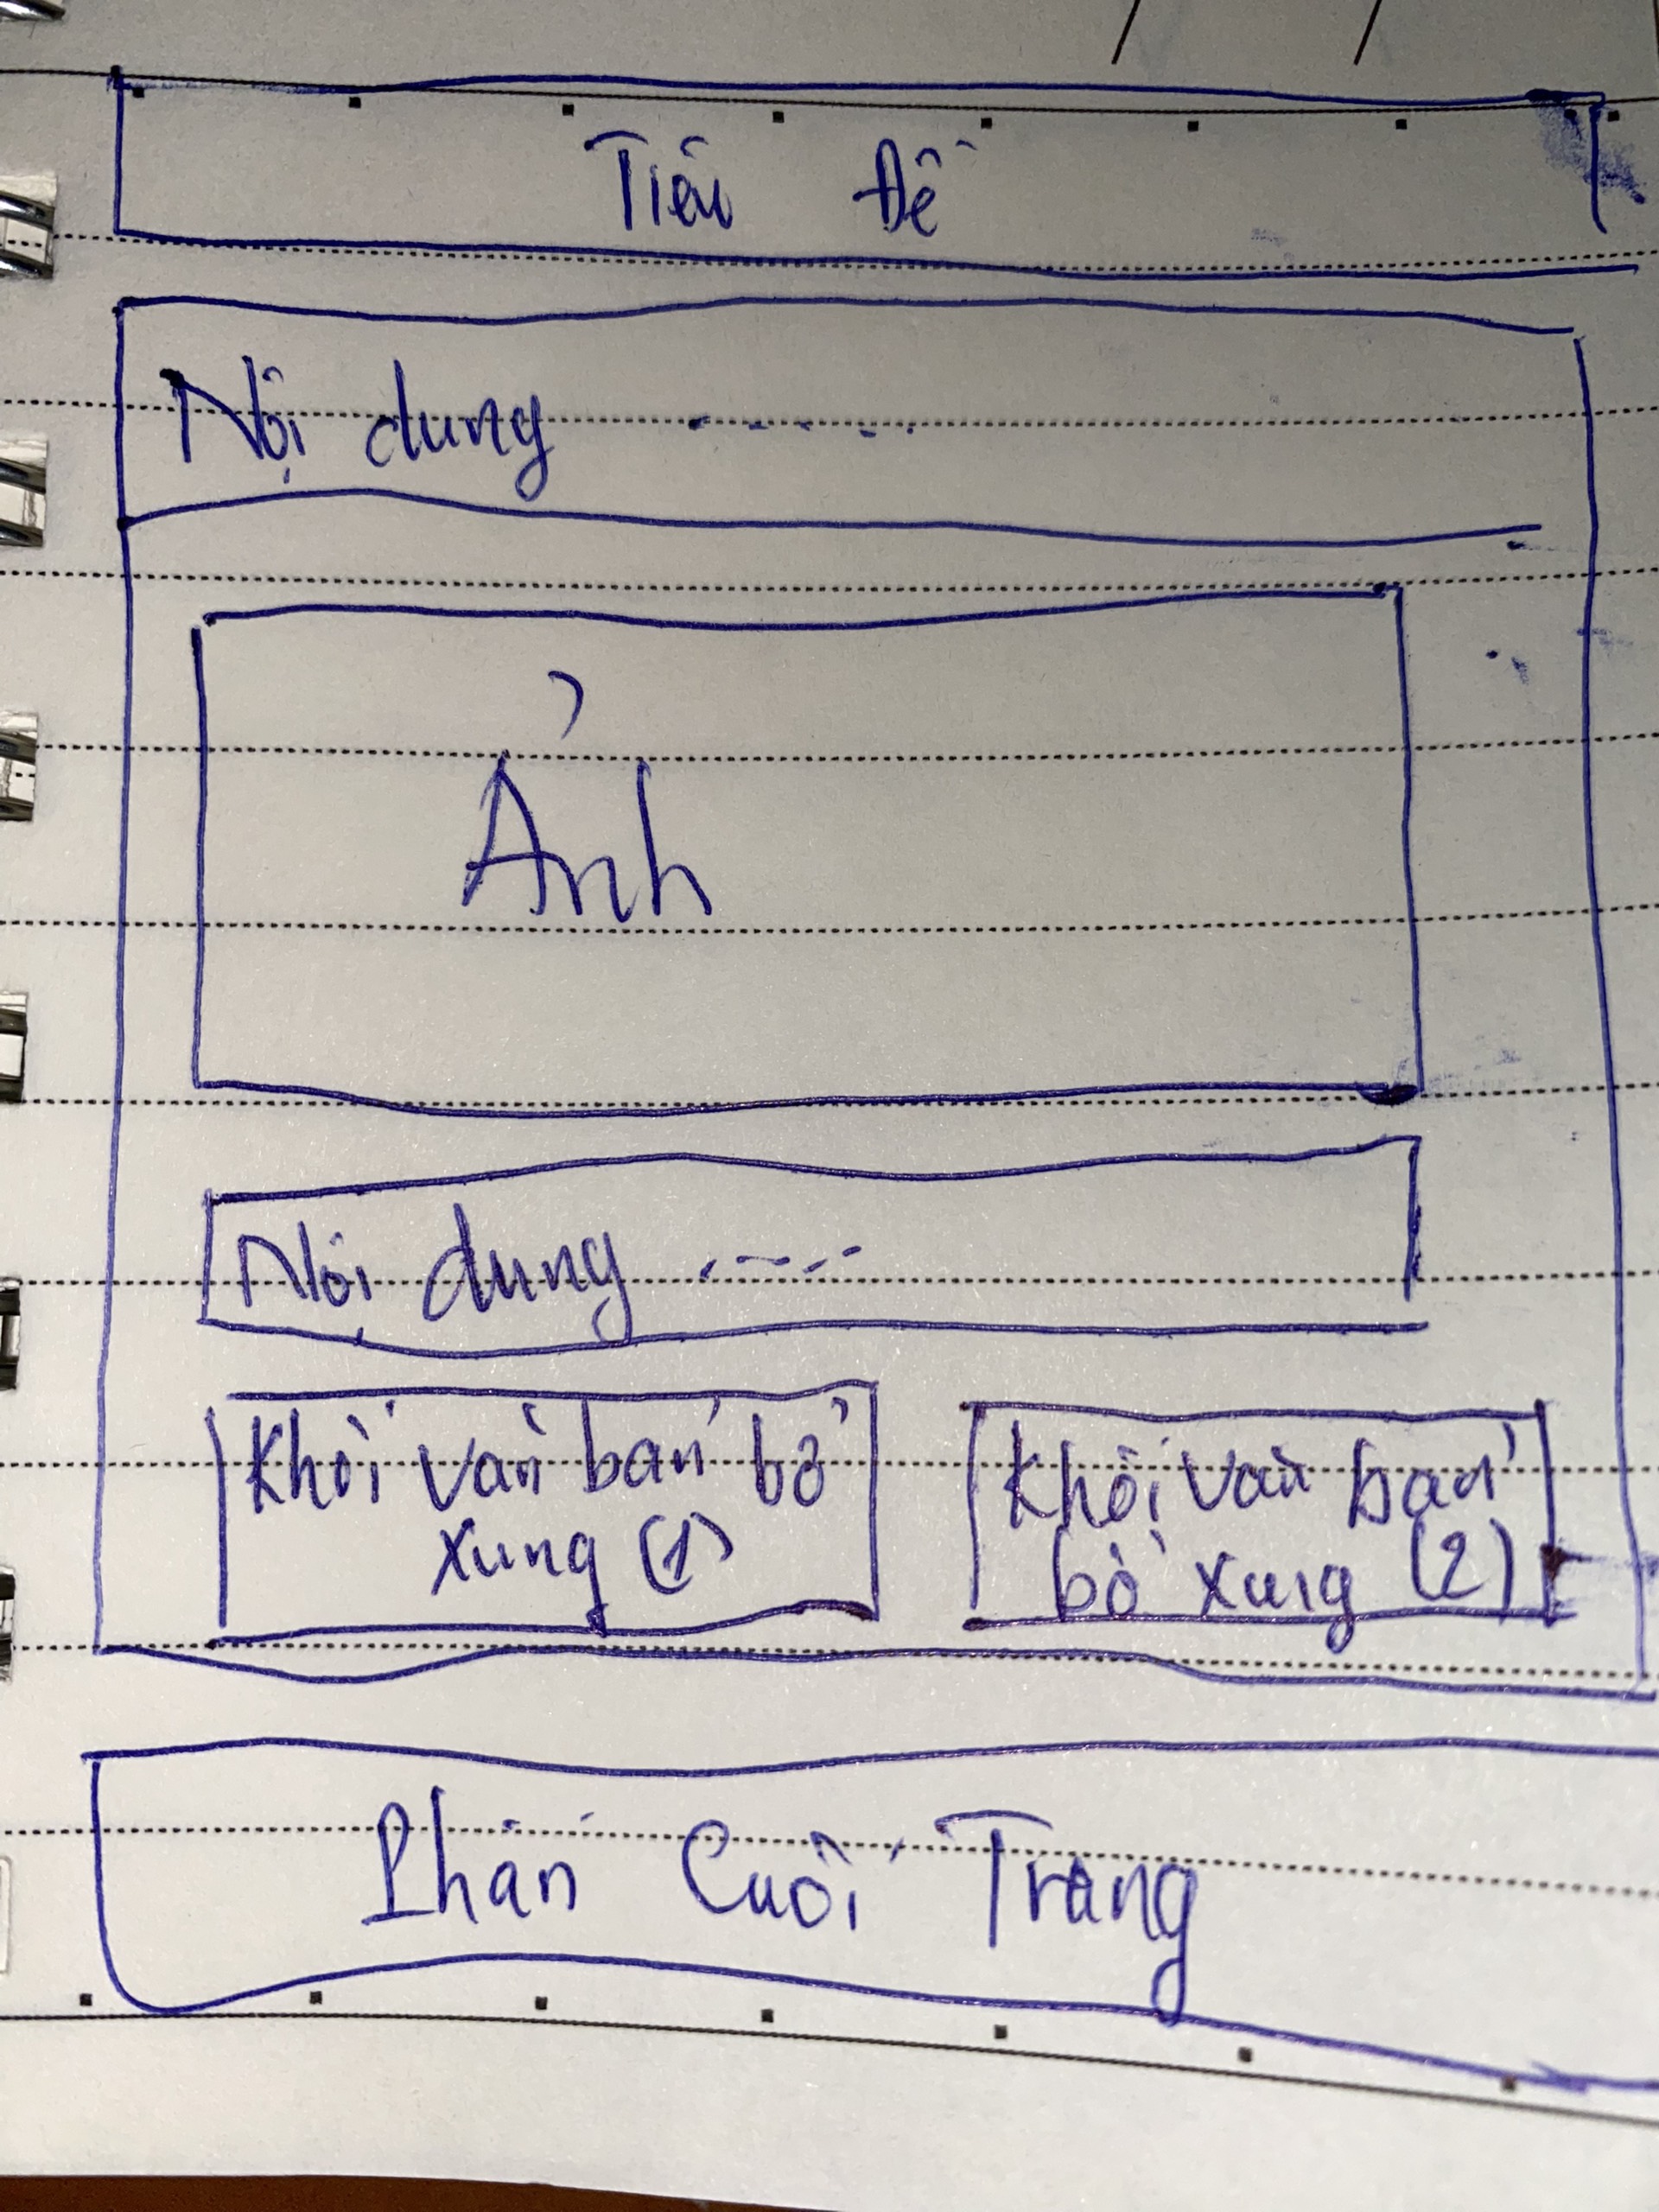 Tiêu Đề
Nội dung .....
Ảnh
Nội dung .....
Khối văn bản bổ
xung (1)
Khối văn bản
bổ xung (2)
Phần Cuối Trang